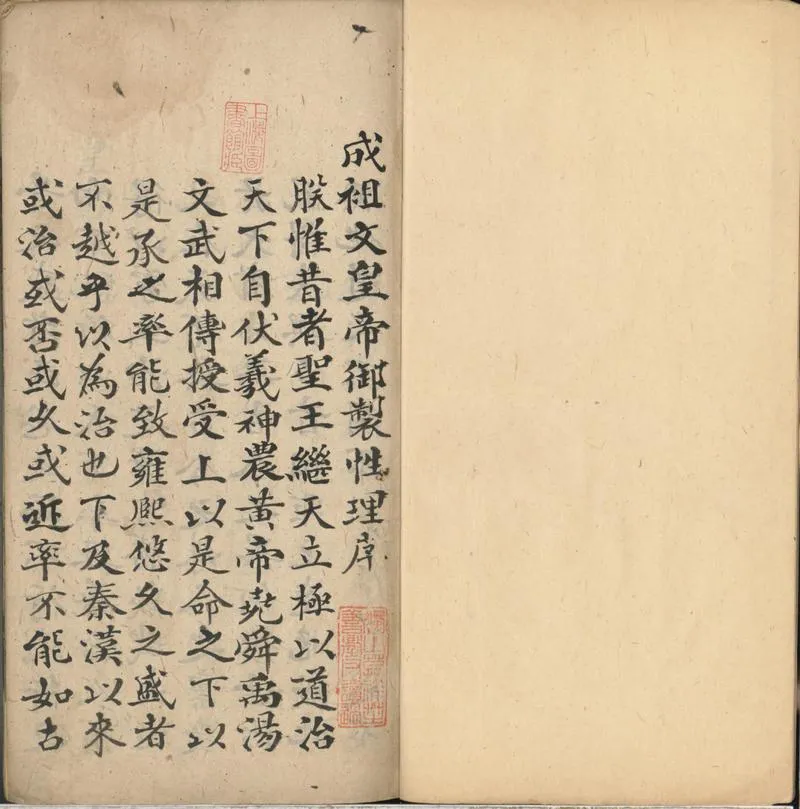 成祖文皇帝御製性理序
朕惟昔者聖王繼天立極以道治
天下自伏羲神農黃帝堯舜禹湯
文武相傳授受上以是命之下以
是承之率能致雍熙悠久之盛者
不越乎以為治也下及秦漢以來
或治或否或久或近率不能如古
上海圖
書館藏